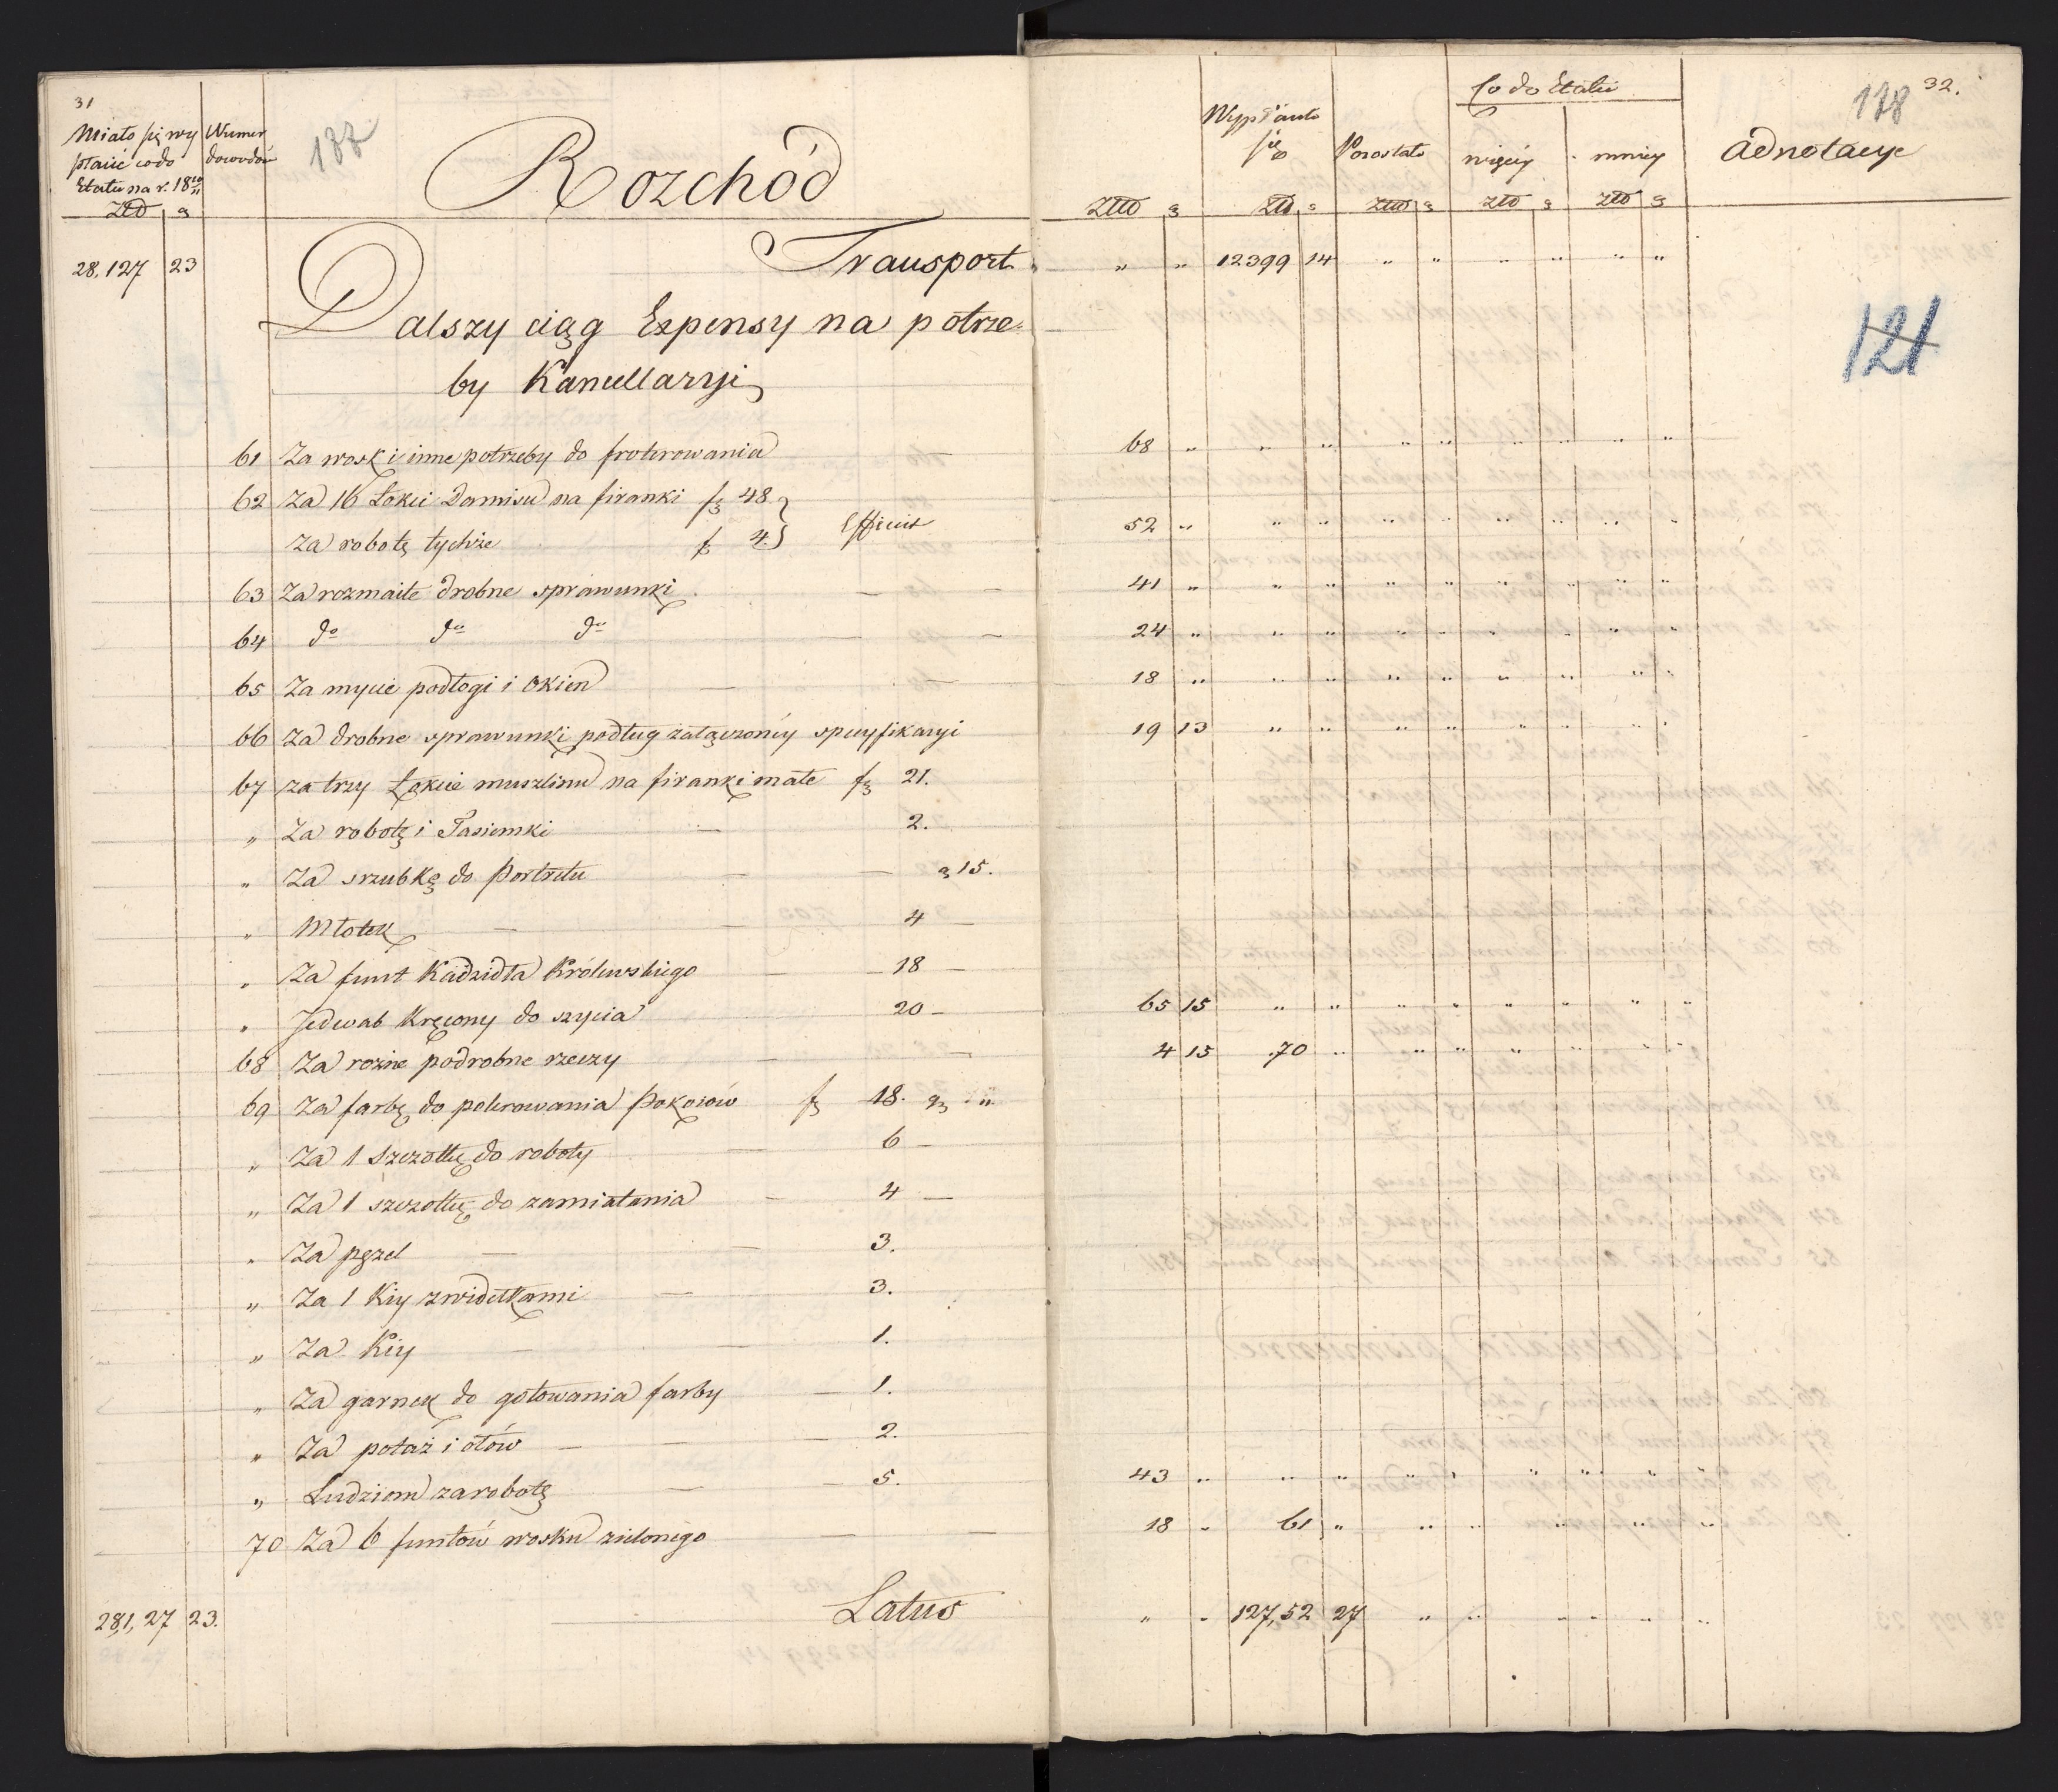 31
Miało się wy
płacić co do
Etatu na r. 18 10/11
Złł g
Numer
dowodów
Rozchód
Złł g
Wypłaciło
się
Złł g
Pozostało
Złł g
Co do Etatu
więcey
złł g
mniey
złł g
Adnotacye
178 32.
28,127 23 Transport " " 12399 14 " " " " " "
Dalszy ciąg Expensy na potrze-
by Kancellaryi
121
61 Za wosk i inne potrzeby do froterowania — 68 " " " " " " " " "
62 Za 16 Łokci Damisu na firanki f 48
Za robotę tychże f 4. Efficit 52 " " " " " " " " "
63 Za rozmaite drobne sprawunki — — 41 " " " " " " " " "
64 do do do — — 24 " " " " " " " " "
65 Za mycie podłogi i okien — — 18 " " " " " " " " "
66 Za drobne sprawunki podług załączoney specyfikacyi 19 13 " " " " " " " "
67 za trzy Łokcie muszlinu na firanki małe f 21.
" Za robotę i Tasiemki — 2.
" Za srzubkę do Portretu — — g 15.
" Młotek — — 4 —
" Za funt Kadzidła Królewskiego — 18 —
" Jedwab kręcony do szycia 20 — 65 15 " " " " " " " "
68 Za rożne podrobne rzeczy — — 4 15 70 " " " " " " "
69 Za farbę do polerowania Pokoiów f 18. g "
" Za 1 szczotkę do roboty — 6 —
" Za 1 szczotkę do zamiatania — 4 —
" Za pęzel — — 3.
" Za 1 Kiy z widełkami — 3.
" Za Kiy — — 1.
" Za garnek do gotowania farby — 1.
" Za potaż i ołów — — 2.
" Ludziom za robotę — — 5. 43 " " " " " " " " "
70 Za 6 funtów wosku zielonego — — 18 " 61 " " " " " " "
281,27 23. Latus " " 127,52 27 " " " " " "